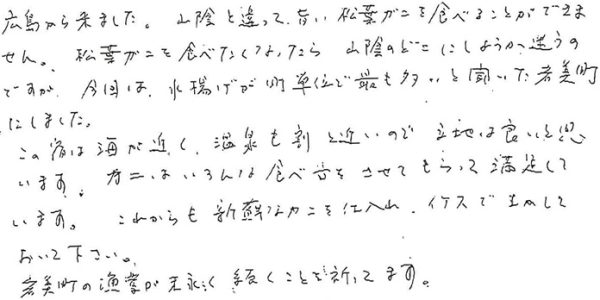 広島から来ました。山陰と違って、旨い松葉ガニを食べることができま
せん。松葉ガニを食べたくなったら山陰のどこにしようか迷うの
ですが、今回は、水揚げが町単位で最も多いと聞いた香美町
にしました。
この宿は海が近く、温泉も割と近いので立地は良いと思
います。カニはいろんな食べ方をさせてもらって満足して
います。これからも新鮮なカニを仕入れ、イケスで生かして
おいて下さい。
香美町の漁業が末永く続くことを祈ってます。